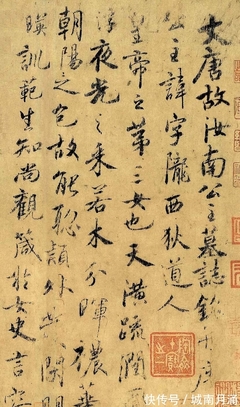 大唐故汝南公主墓誌銘十月
公主諱字隴西狄道人
皇帝之第三女也天潢疏潤
浮夜光之采若木分暉穠華
朝陽之色故能聰穎外發閑明
暎訓範生知尚觀箴於女史言容
快传号/城南月涵